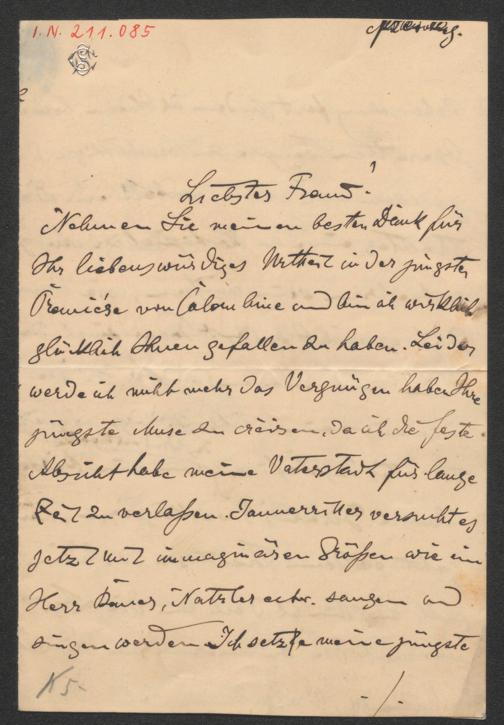 I.N. 211.085
Liebster Freund!
Nehmen Sie meinen besten Dank für
Ihr liebenswürdiges Urtheil in der jüngsten
Première von Colombine und bin ich wirklich
glücklich Ihnen gefallen zu haben. Leider
werde ich nicht mehr das Vergnügen haben Ihre
jüngste Muse zu , da ich die feste
Absicht habe meine Vaterstadt für lange
Zeit zu verlaßen. Jauner versucht es
jetzt mit immaginären Größen wie ein
Herr , Natzler sangen und
singen werden. Ich setzte meine jüngste
K 5-
./.